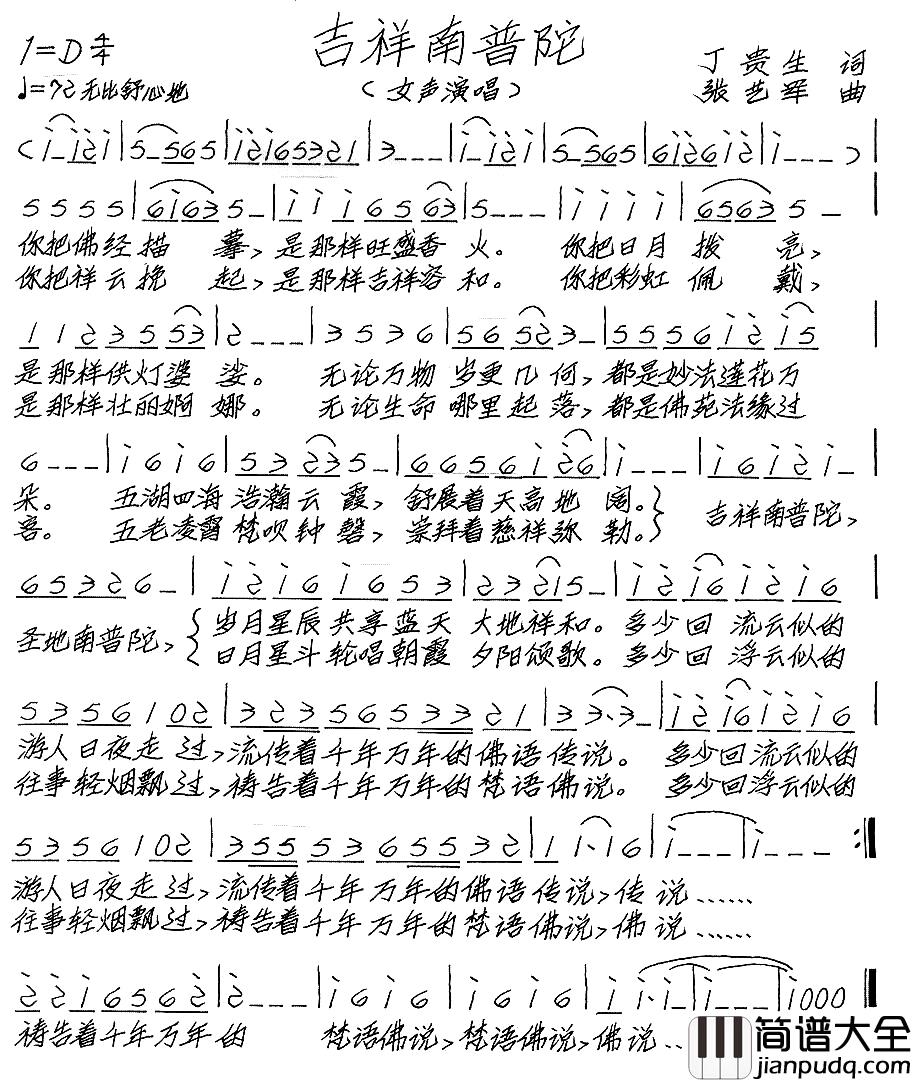 吉祥南普陀
1=D 4/4
♩=72 无比舒心地
（女声演唱）
丁贵生 词
张艺军 曲
(i_i2i|5_565|i2i65321|3---|i_i2i|5_565|6i26i2|i---)|
5555|6i635_|iii6563|5---|iiii|65635_|
你把佛经描摹，是那样旺盛香火。你把日月拨亮，
你把祥云挽起，是那样吉祥容和。你把彩虹佩戴，
1123553|2---|3536|56523_|5556i2i5|
是那样供灯婆娑。无论万物岁更几何，都是妙法莲花万
是那样壮丽婀娜。无论生命哪里起落，都是佛苑法缘过
6---|i6i6|53235_|6656i26|i---|i6i2i_|
朵。五湖四海浩瀚云霞，舒展着天高地阔。} 吉祥南普陀，
喜。五老凌霄梵呗钟磬，崇拜着慈祥弥勒。}
65326_|i2i6i653|232i5_|i2i6i2i6|
圣地南普陀，{岁月星辰共享蓝天大地祥和。多少回流云似的
{日月星斗轮唱朝霞夕阳颂歌。多少回浮云似的
5356102|3235653321|33·3_|i2i6i2i6|
游人日夜走过，流传着千年万年的佛语传说。多少回流云似的
往事轻烟飘过，祷告着千年万年的梵语佛说。多少回浮云似的
5356102|3555365532|1i·i6|i---|i---:|
游人日夜走过，流传着千年万年的佛语传说，传说……
往事轻烟飘过，祷告着千年万年的梵语佛说，佛说……
22i65662|2---|i6i6|i6i6|ii·i_|i---|i000|
祷告着千年万年的 梵语佛说，梵语佛说，佛说..
简谱大全
jianpudq.com